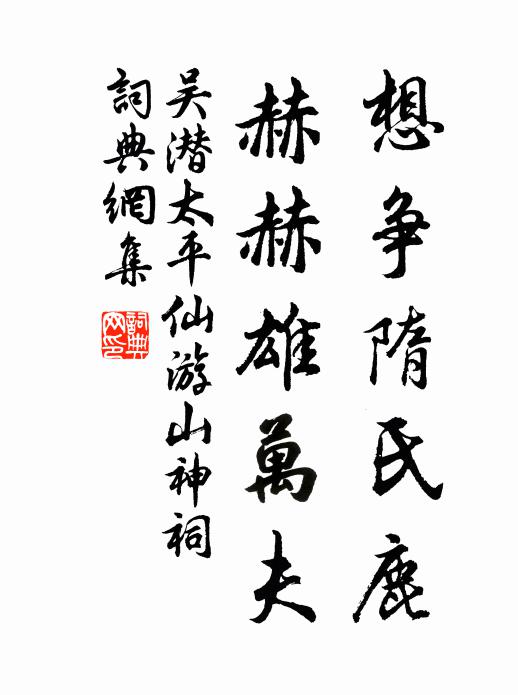 想争隋氏鹿
赫赫雄萬夫
吴潜太平仙游山神祠
詞典網集
詞典網印